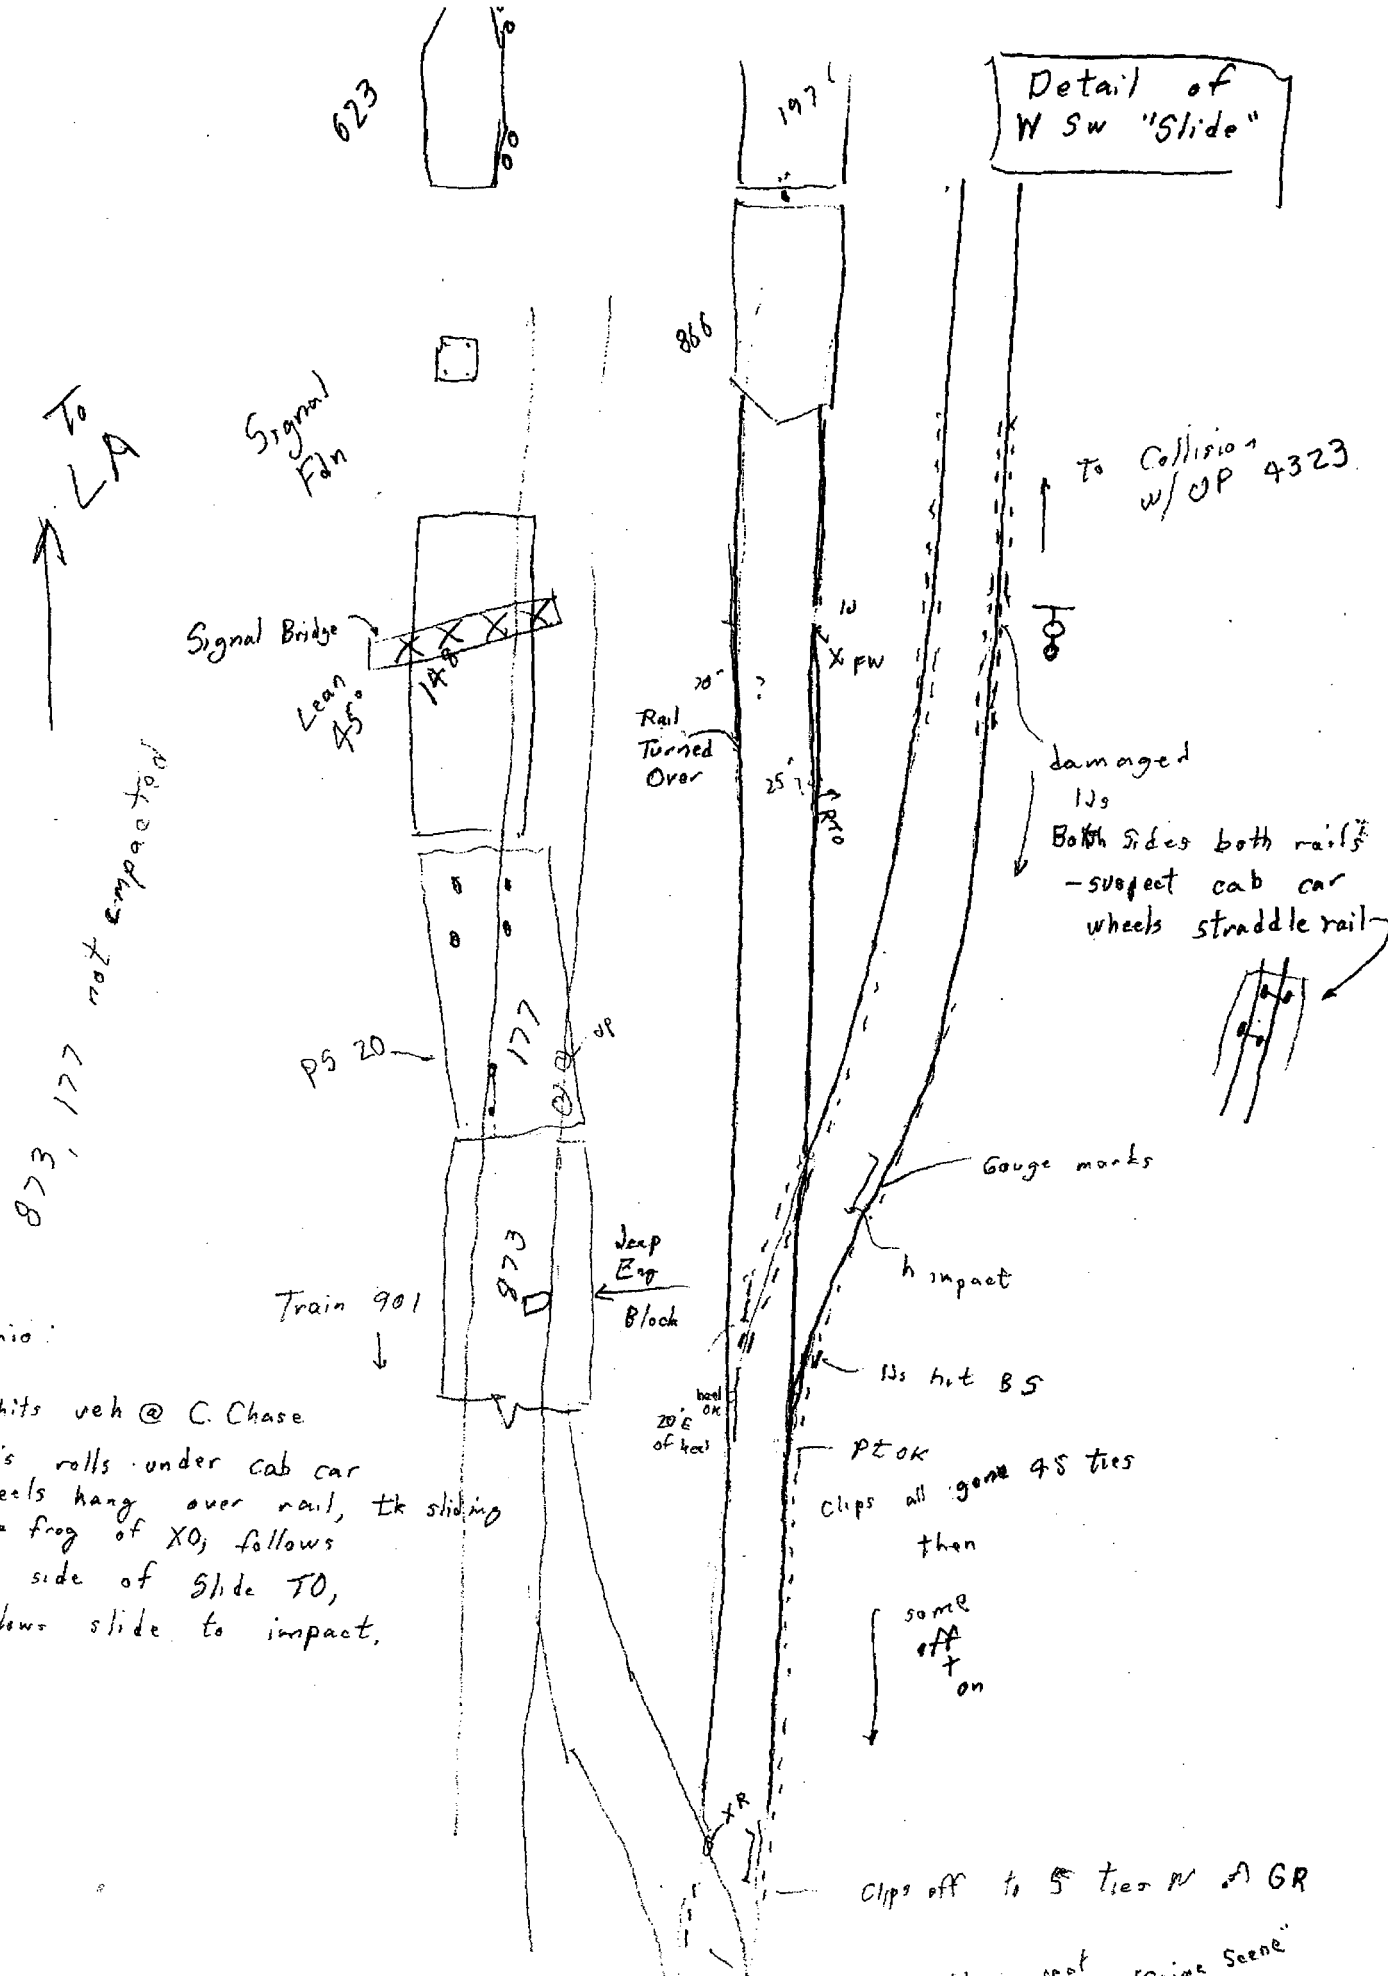 623
197
Detail of
W SW "Slide"
866
To
LA
Signal
Fdn
To Collision
w/ UP 4323
Signal Bridge
Lean
45°
148
X FW
70'
?
Rail
Turned
Over
25'
RTO
damaged
Both sides both rails
- suspect cab car
wheels straddle rail
873, 177 not impacted
PS 20
177
UP
Gouge marks
impact
873
Jeep
Eng
Block
Train 901
hits veh @ C. Chase
rolls under cab car
hang over rail, tk sliding
frog of XO; follows
side of Slide TO,
slide to impact.
hit BS
heel
OK
20' E
of heel
Pt OK
Clips all gone 45 ties
then
some
off
+
on
XR
Clips off to 5 ties N of GR
Scene"